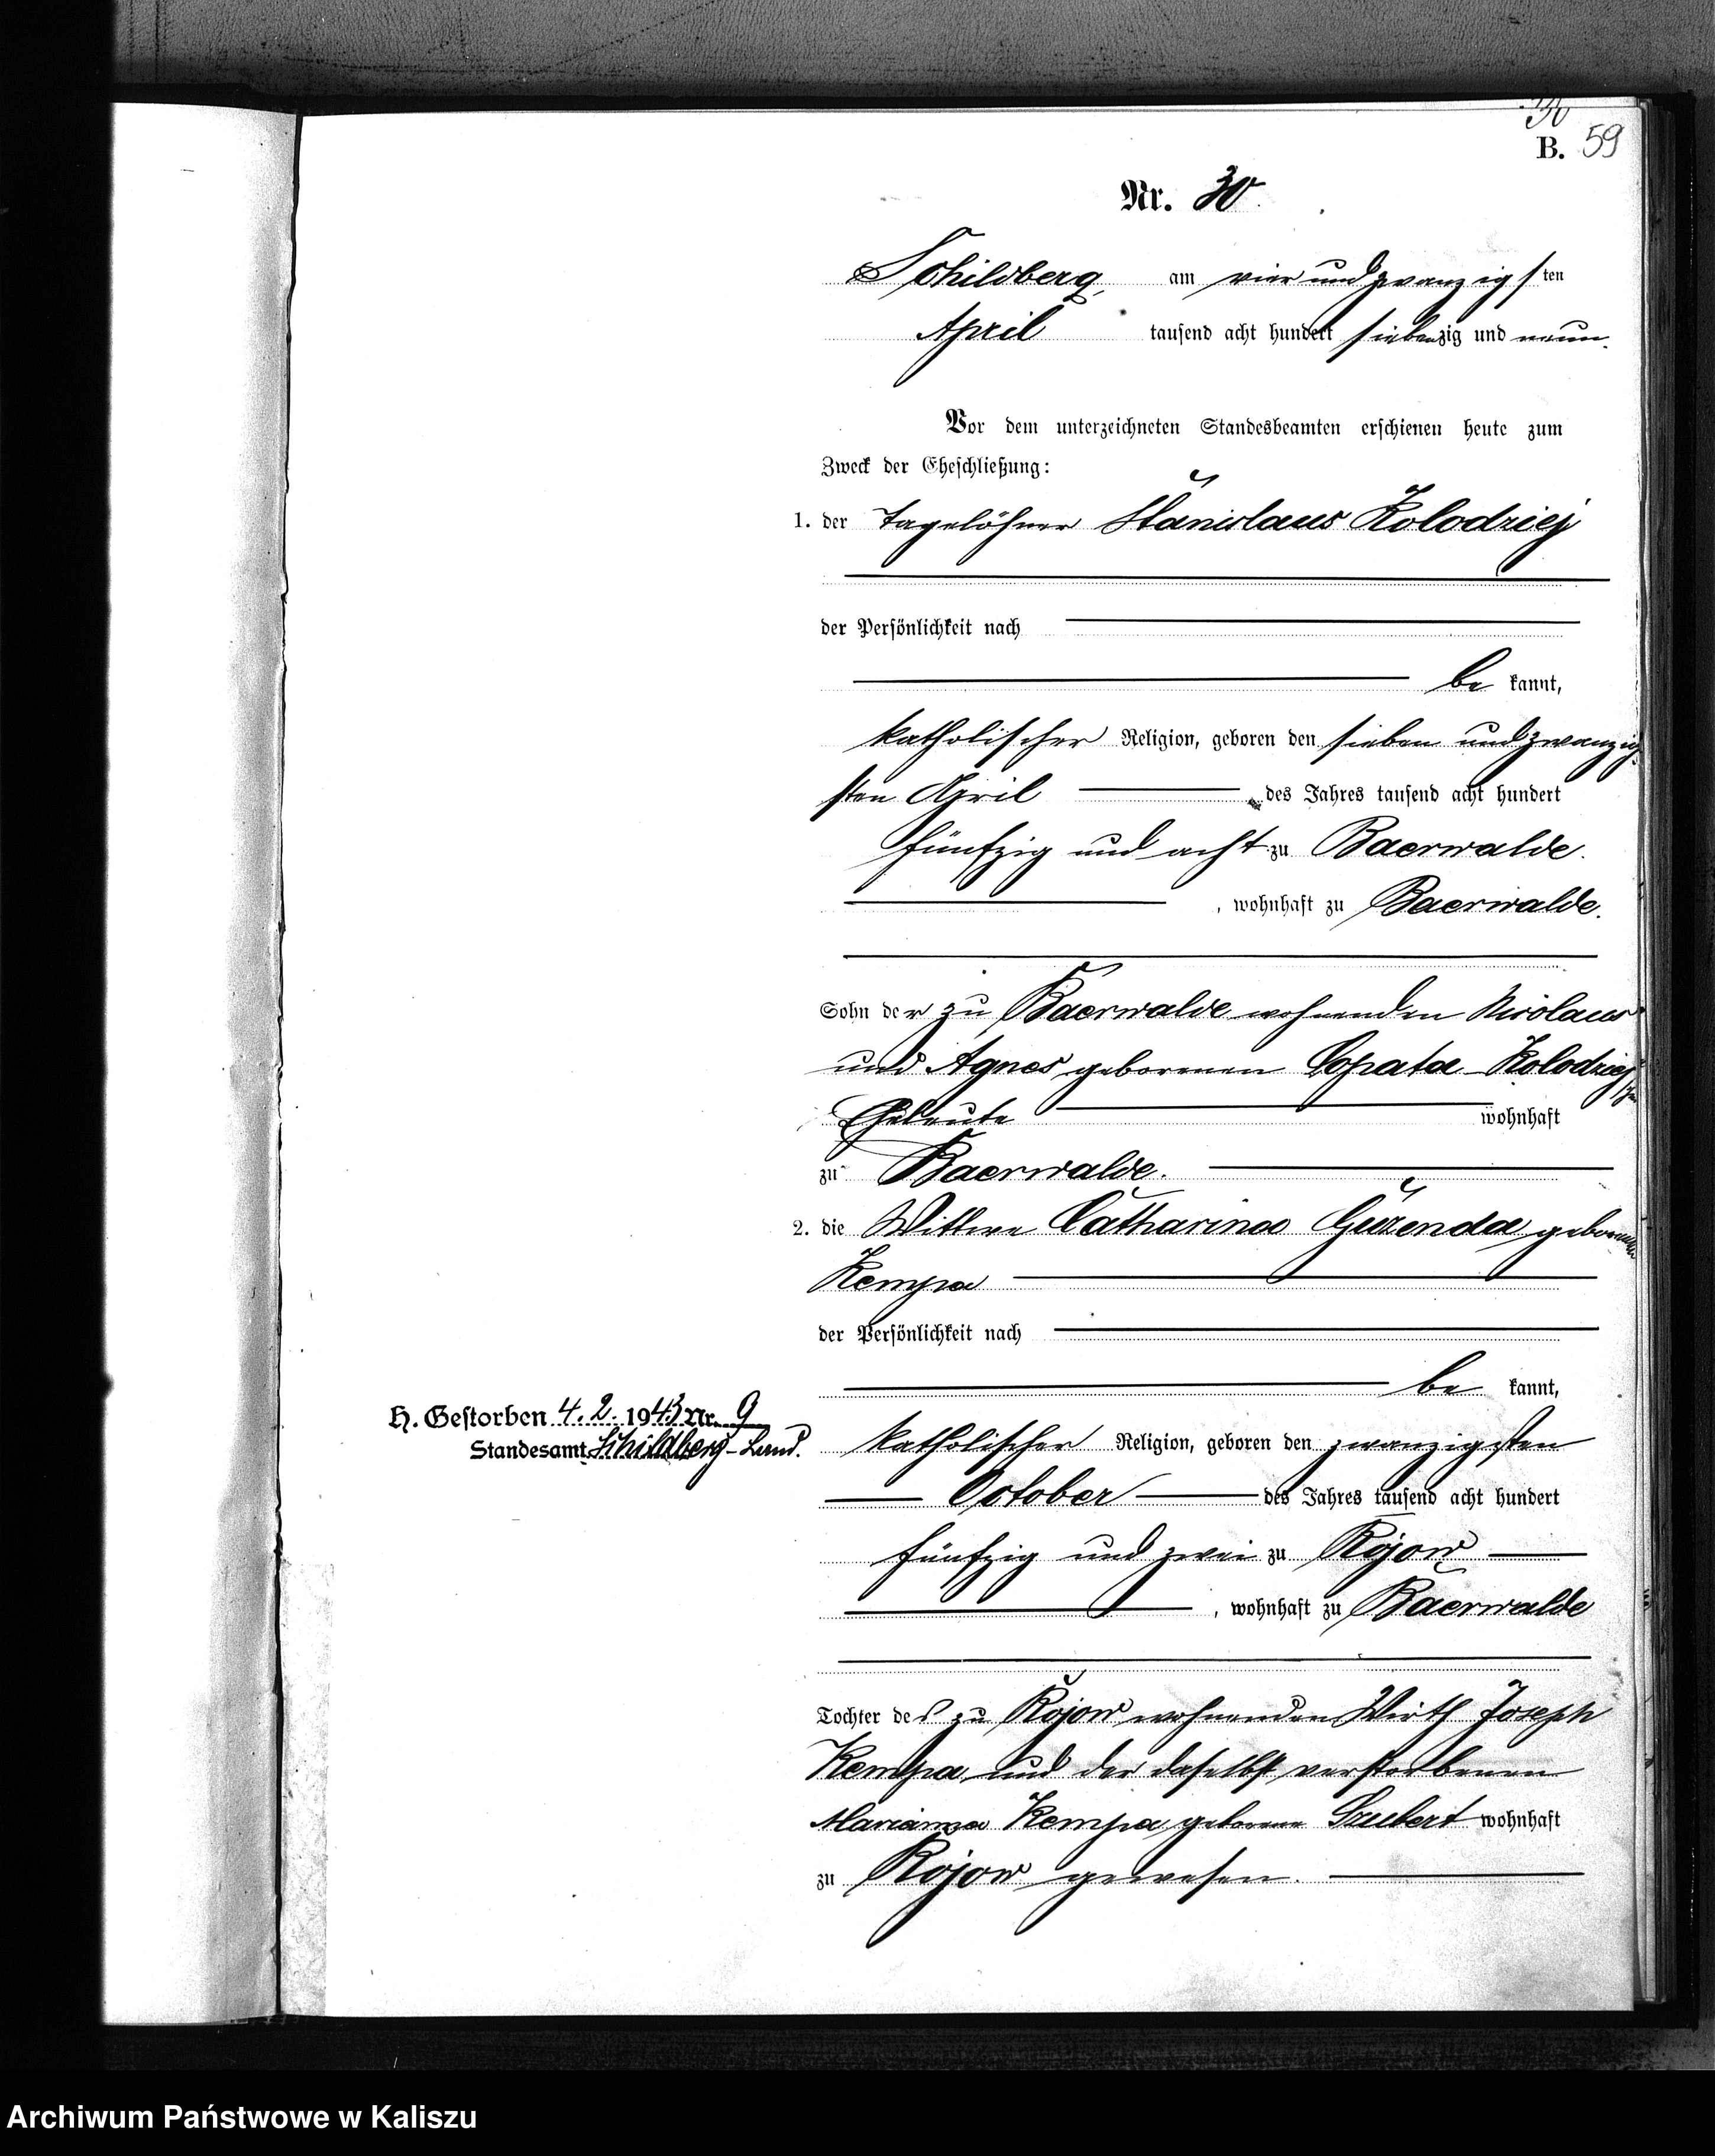 30
B. 59
Nr. 30
Schildberg, am vier und zwanzigsten
April tausend acht hundert siebenzig und neun.
Vor dem unterzeichneten Standesbeamten erschienen heute zum
Zweck der Eheschließung:
1. der Tagelöhner Stanislaus Kolodziej
der Persönlichkeit nach
be kannt,
katholischer Religion, geboren den sieben und zwanzig-
sten April des Jahres tausend acht hundert
fünfzig und acht zu Baerwalde.
, wohnhaft zu Baerwalde.
Sohn der zu Baerwalde wohnenden Nicolaus
und Agnes geborenen Lopata - Kolodziej'schen
Eheleute wohnhaft
zu Baerwalde.
2. die Wittwe Catharina Guzenda geborene
Kempa
der Persönlichkeit nach
be kannt,
H. Gestorben 4. 2. 1943 Nr. 9
Standesamt Schildberg-Land.
katholischer Religion, geboren den zwanzigsten
October des Jahres tausend acht hundert
fünfzig und zwei zu Rojow
, wohnhaft zu Baerwalde
Tochter des zu Rojow wohnenden Wirth Joseph
Kempa und der daselbst verstorbenen
Marianna Kempa geborene Szubert wohnhaft
zu Rojow gewesen.
Archiwum Państwowe w Kaliszu